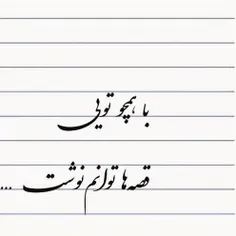 با همچو تویی
قصه‌ها توانم نوشت ...